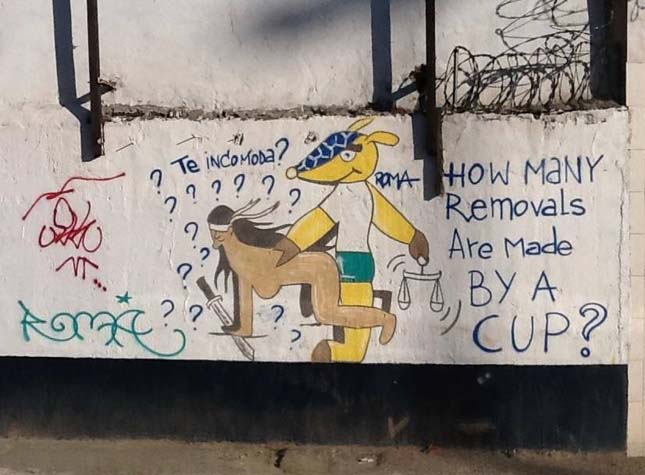 Te incomoda?
ROMA
HOW MANY
Removals
Are Made
BY A
CUP?